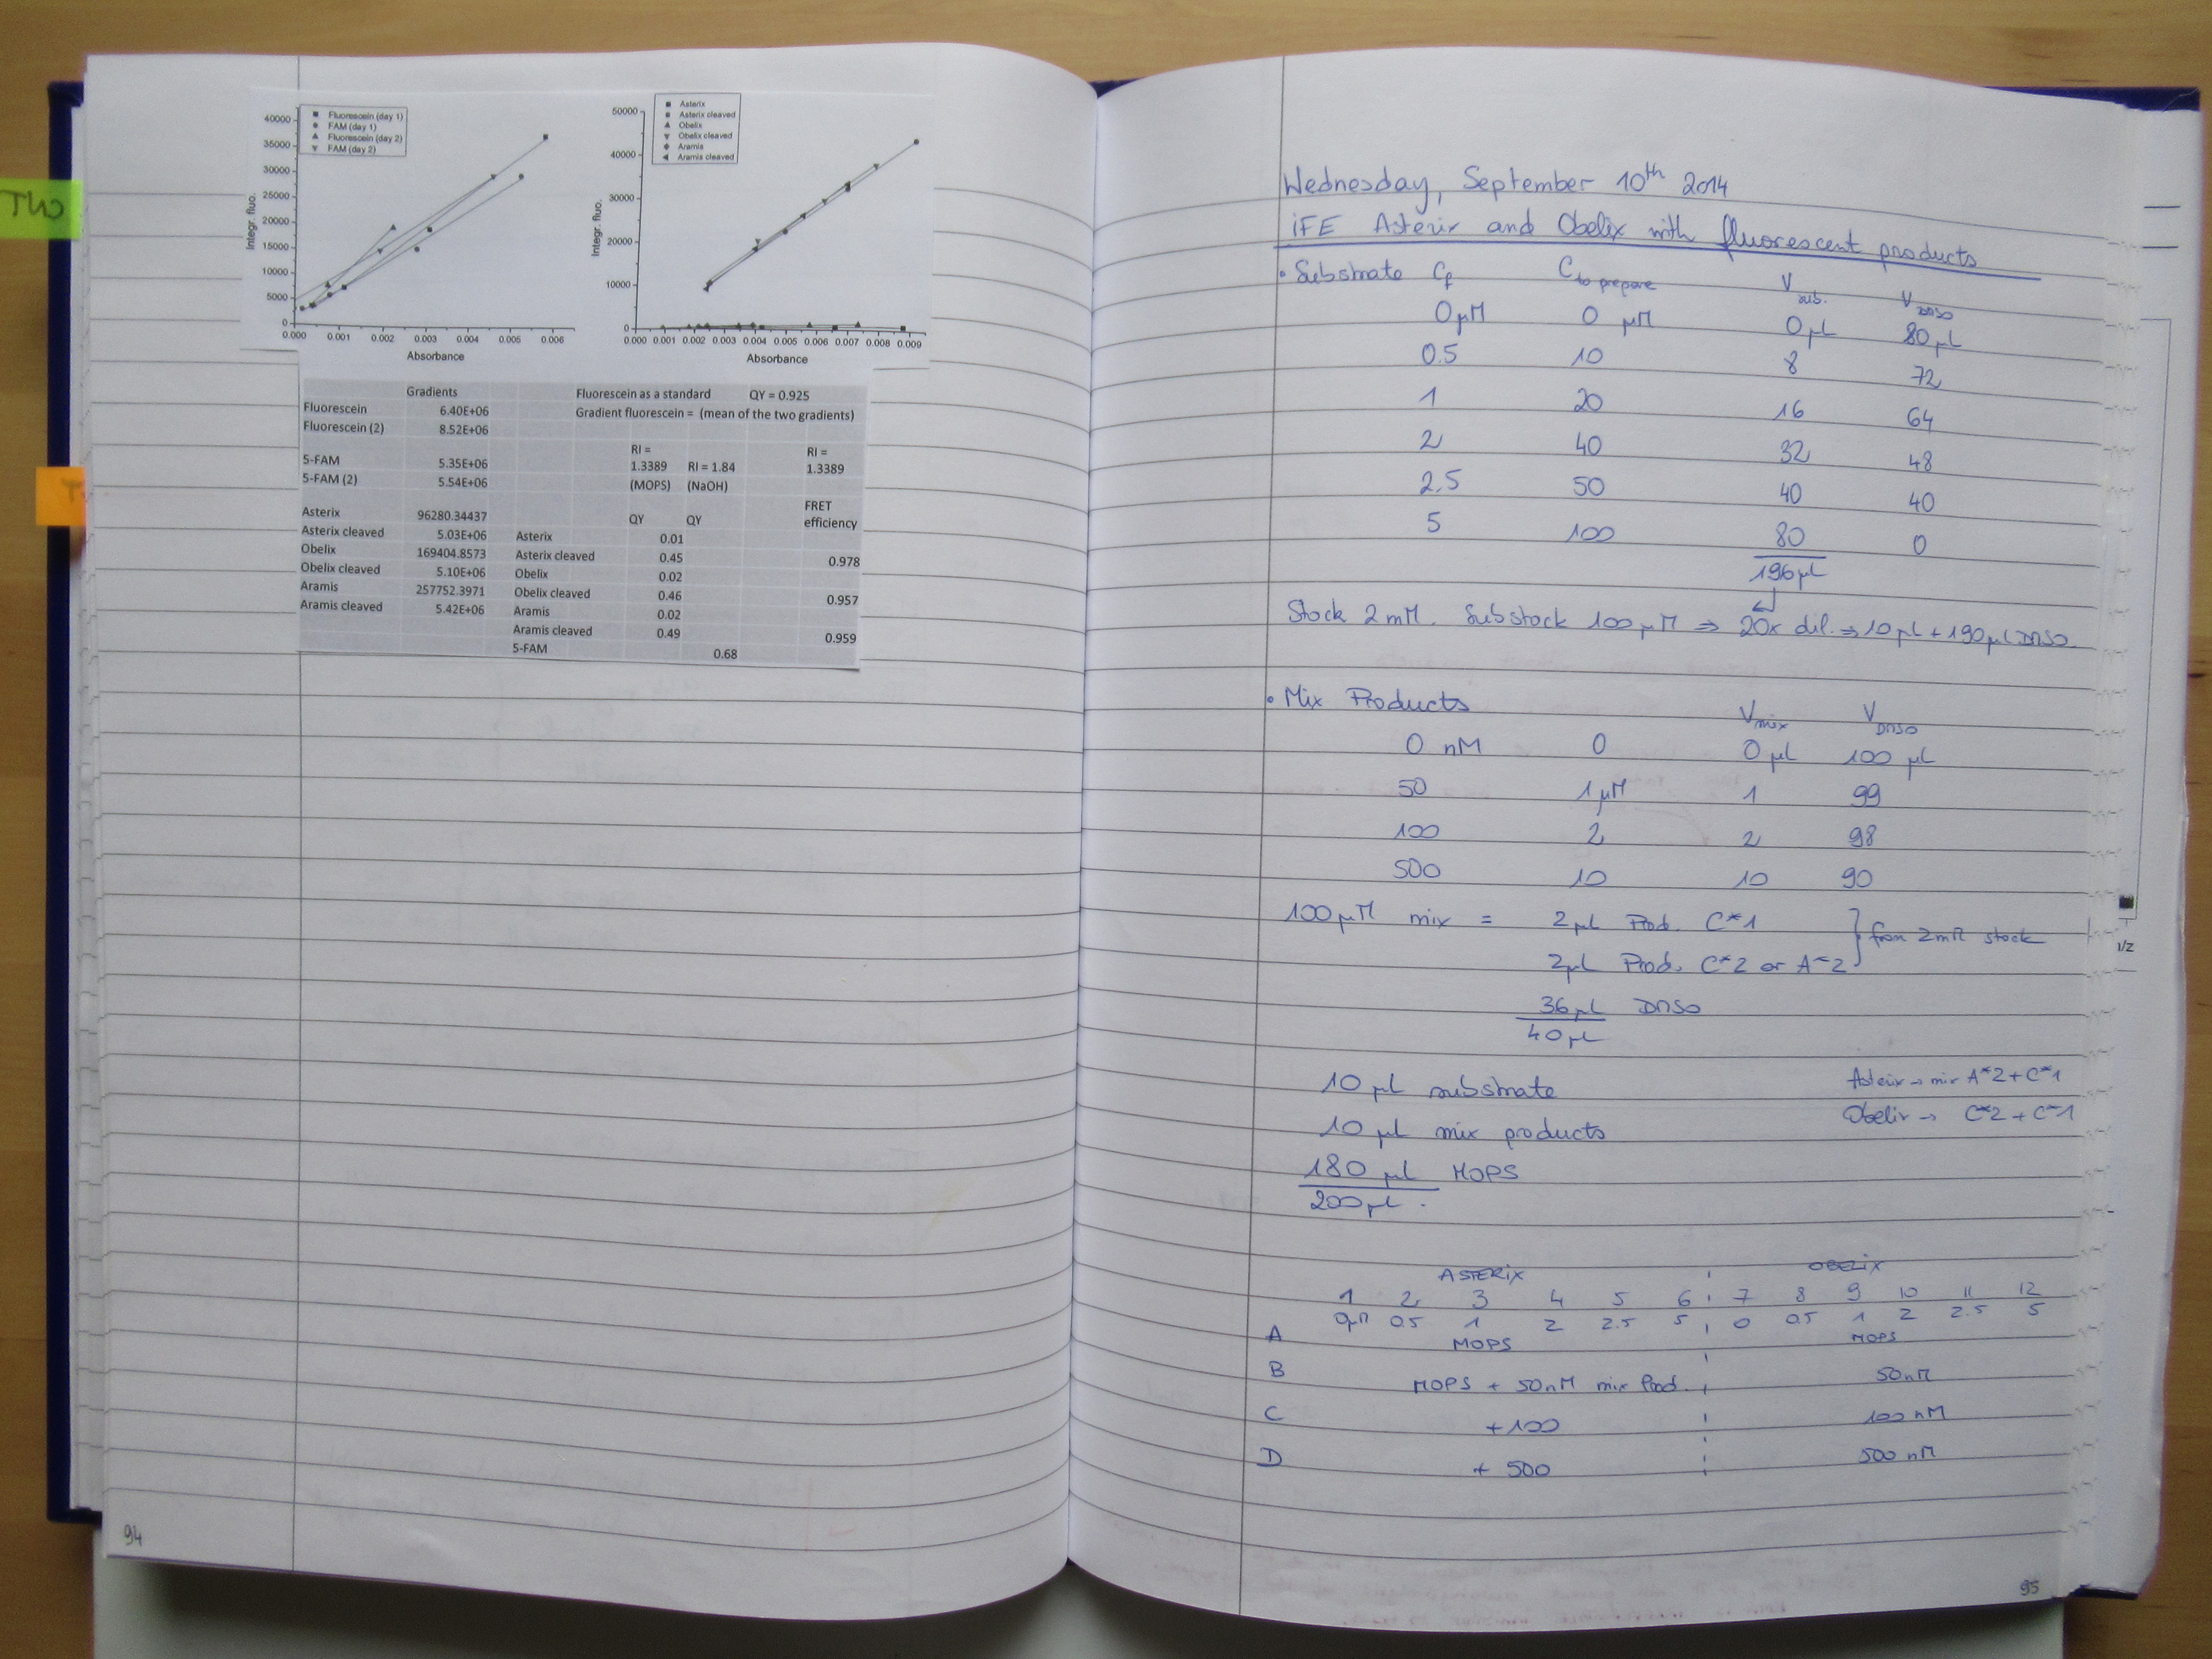 TWO
40000
35000
30000
25000
20000
15000
10000
5000
0
Integr. fluo.
Fluorescein (day 1)
FAM (day 1)
Fluorescein (day 2)
FAM (day 2)
0.000 0.001 0.002 0.003 0.004 0.005 0.006
Absorbance
50000
40000
30000
20000
10000
0
Integr. fluo.
Asterix
Asterix cleaved
Obelix
Obelix cleaved
Aramis
Aramis cleaved
0.000 0.001 0.002 0.003 0.004 0.005 0.006 0.007 0.008 0.009
Absorbance
Gradients Fluorescein as a standard QY = 0.925
Fluorescein 6.40E+06 Gradient fluorescein = (mean of the two gradients)
Fluorescein (2) 8.52E+06
RI = RI =
5-FAM 5.35E+06 1.3389 RI = 1.84 1.3389
5-FAM (2) 5.54E+06 (MOPS) (NaOH)
FRET
Asterix 96280.34437 QY QY efficiency
Asterix cleaved 5.03E+06 Asterix 0.01
Obelix 169404.8573 Asterix cleaved 0.45 0.978
Obelix cleaved 5.10E+06 Obelix 0.02
Aramis 257752.3971 Obelix cleaved 0.46 0.957
Aramis cleaved 5.42E+06 Aramis 0.02
Aramis cleaved 0.49 0.959
5-FAM 0.68
94
Wednesday, September 10th 2014
iFE Asterix and Obelix with fluorescent products
• Substrate Cf C to prepare V sub. V DMSO
0 µM 0 µM 0 µL 80 µL
0.5 10 8 72
1 20 16 64
2 40 32 48
2.5 50 40 40
5 100 80 0
196 µL
Stock 2 mM. Substock 100 µM ⇒ 20x dil. ⇒ 10 µL + 190 µL DMSO.
• Mix Products V mix V DMSO
0 nM 0 0 µL 100 µL
50 1 µM 1 99
100 2 2 98
500 10 10 90
100 µM mix = 2 µL Prod. C*1
2 µL Prod. C*2 or A*2 } from 2 mM stock
36 µL DMSO
40 µL
10 µL substrate Asterix → mix A*2 + C*1
10 µL mix products Obelix → C*2 + C*1
180 µL MOPS
200 µL.
ASTERIX OBELIX
1 2 3 4 5 6 7 8 9 10 11 12
0 µM 0.5 1 2 2.5 5 0 0.5 1 2 2.5 5
A MOPS MOPS
B MOPS + 50 nM mix Prod. 50 nM
C + 100 100 nM
D + 500 500 nM
95
1/2